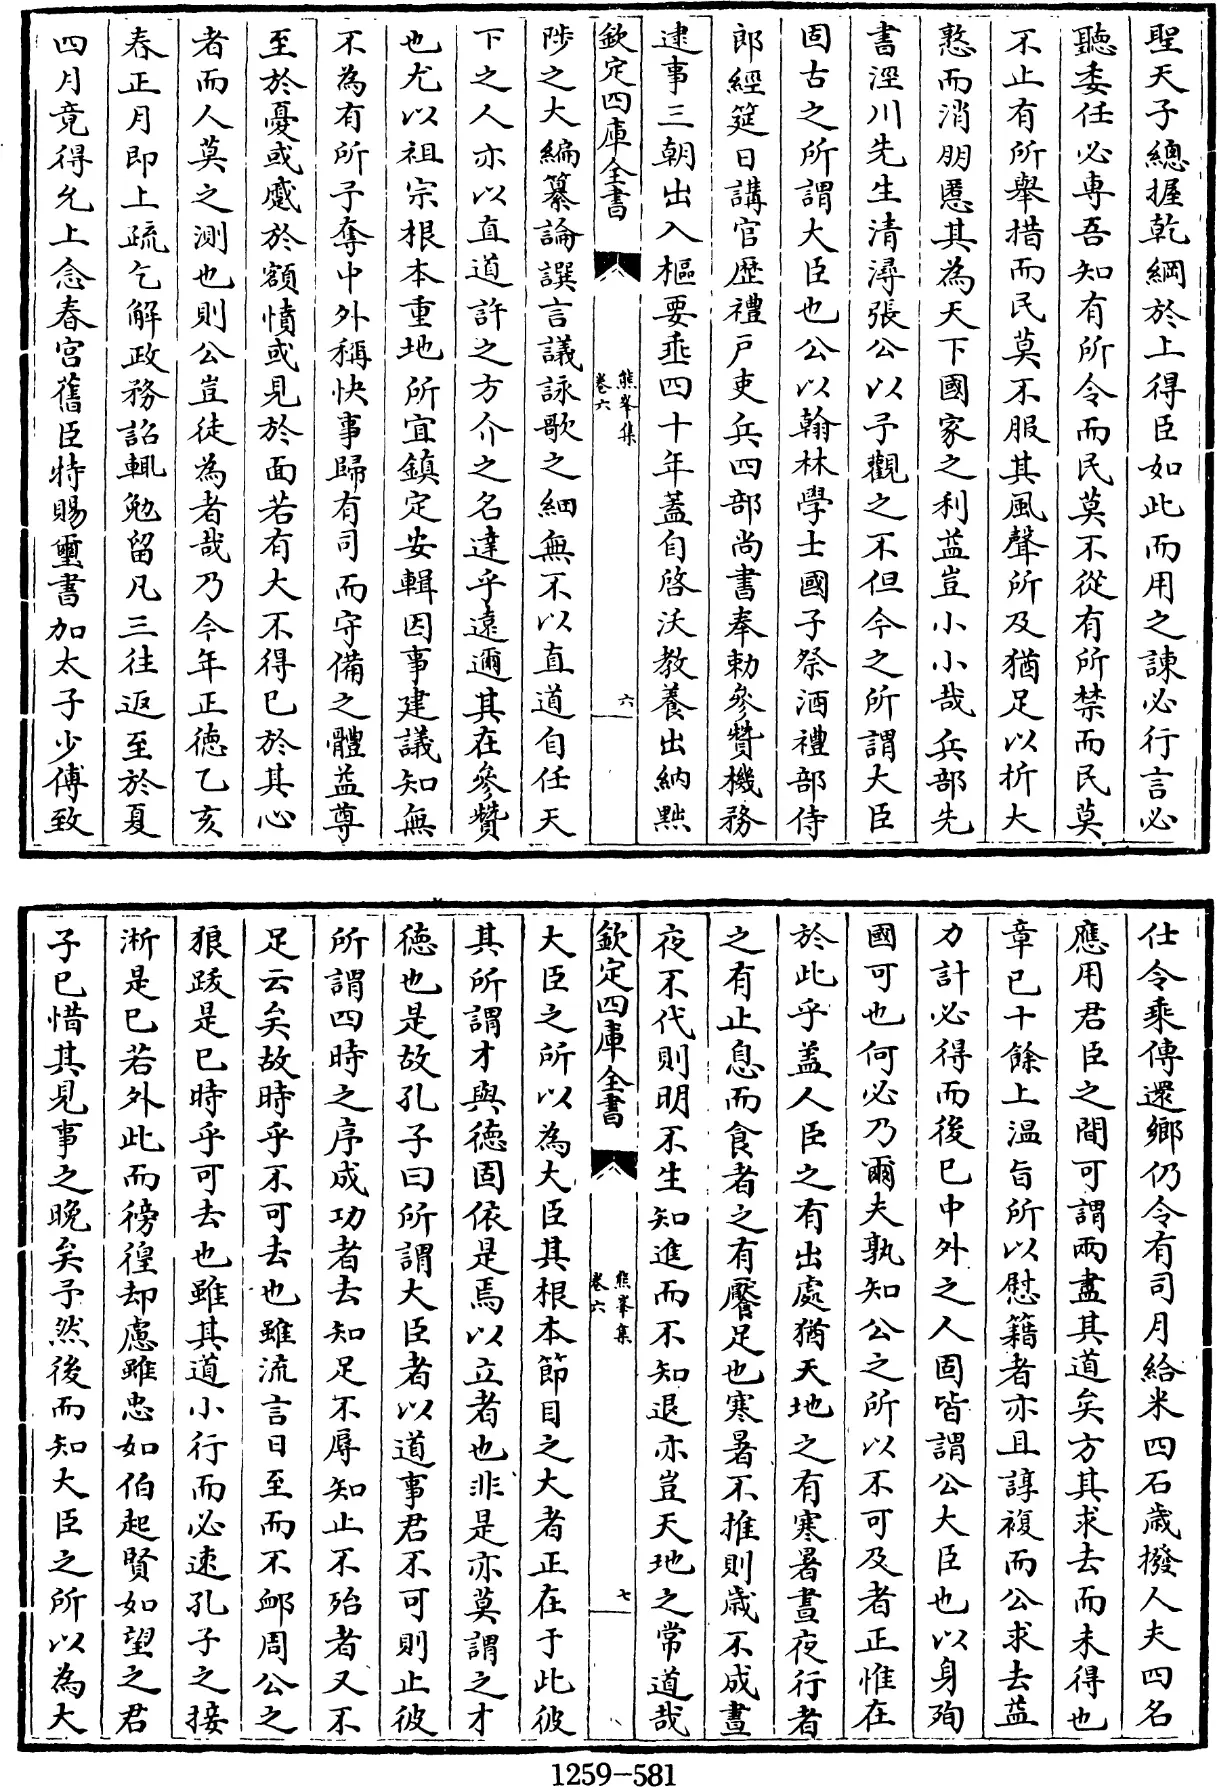 聖天子總握乾綱於上得臣如此而用之諫必行言必
聽委任必專吾知有所令而民莫不從有所禁而民莫
不止有所舉措而民莫不服其風聲所及猶足以折大
憝而消朋慝其為天下國家之利益豈小小哉兵部先
書涇川先生清潯張公以予觀之不但今之所謂大臣
固古之所謂大臣也公以翰林學士國子祭酒禮部侍
郎經筵日講官歷禮戸吏兵四部尚書奉勅參贊機務
逮事三朝出入樞要垂四十年蓋自啓沃教養出納黜
欽定四庫全書
熊峯集
卷六
六
陟之大編纂論譔言議詠歌之細無不以直道自任天
下之人亦以直道許之方介之名達乎遠邇其在參贊
也尤以祖宗根本重地所宜鎮定安輯因事建議知無
不為有所予奪中外稱快事歸有司而守備之體益尊
至於憂或慼於額憤或見於面若有大不得已於其心
者而人莫之測也則公豈徒為者哉乃今年正徳乙亥
春正月即上疏乞解政務詔輒勉留凡三往返至於夏
四月竟得允上念春宮舊臣特賜璽書加太子少傅致
仕令乘傳還鄉仍令有司月給米四石歲撥人夫四名
應用君臣之間可謂兩盡其道矣方其求去而未得也
章已十餘上溫旨所以慰籍者亦且諄複而公求去益
力計必得而後已中外之人固皆謂公大臣也以身殉
國可也何必乃爾夫孰知公之所以不可及者正惟在
於此乎盖人臣之有出處猶天地之有寒暑晝夜行者
之有止息而食者之有饜足也寒暑不推則歳不成晝
夜不代則明不生知進而不知退亦豈天地之常道哉
欽定四庫全書
熊峯集
卷六
七
大臣之所以為大臣其根本節目之大者正在于此彼
其所謂才與徳固依是焉以立者也非是亦莫謂之才
徳也是故孔子曰所謂大臣者以道事君不可則止彼
所謂四時之序成功者去知足不辱知止不殆者又不
足云矣故時乎不可去也雖流言日至而不卹周公之
狼跋是已時乎可去也雖其道小行而必速孔子之接
淅是已若外此而徬徨却慮雖忠如伯起賢如望之君
子已惜其見事之晚矣予然後而知大臣之所以為大
1259-581